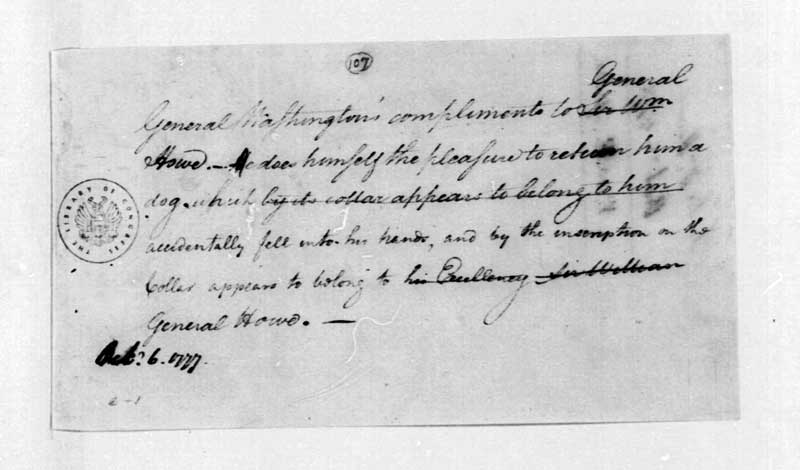 107
General
General Washington's compliments to Sir Wm
Howe. — He does himself the pleasure to return him a
dog, which by its collar appears to belong to him
accidentally fell into his hands, and by the inscription on the
Collar appears to belong to his Excellency Sir William
General Howe. —
Octr. 6. 1777.
THE LIBRARY OF CONGRESS